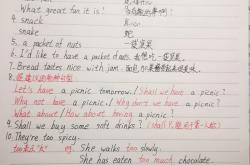 What great fun it is!
4. snack
snake 蛇
5. a packet of nuts 一袋坚果
6. I'd like to have a packet of nuts. 我想吃一袋坚果
7. Bread tastes nice with jam.
8. 提建议的句型
Let's have a picnic tomorrow. / Shall we have a picnic?
Why not have a picnic? / Why don't we have a picnic?
What about / How about having a picnic?
9. Shall we buy some soft drinks?
10. They're too spicy.
eg. She walks too slowly.
She has eaten too much chocolate.